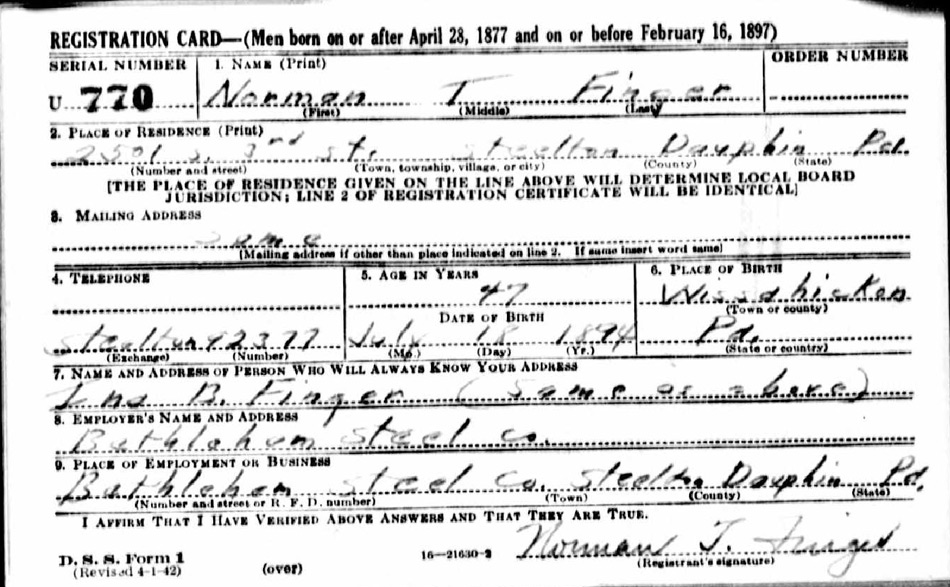 REGISTRATION CARD—(Men born on or after April 28, 1877 and on or before February 16, 1897)
SERIAL NUMBER 1. NAME (Print) ORDER NUMBER
U 770 Norman T. Finger
(First) (Middle) (Last)
2. PLACE OF RESIDENCE (Print)
2501 S. 3rd St. Steelton Dauphin Pa.
(Number and street) (Town, township, village, or city) (County) (State)
[THE PLACE OF RESIDENCE GIVEN ON THE LINE ABOVE WILL DETERMINE LOCAL BOARD
JURISDICTION; LINE 2 OF REGISTRATION CERTIFICATE WILL BE IDENTICAL]
3. MAILING ADDRESS
Same
[Mailing address if other than place indicated on line 2. If same insert word same]
4. TELEPHONE 5. AGE IN YEARS 6. PLACE OF BIRTH
47 Wissahickon
DATE OF BIRTH (Town or county)
Steelton 92377 July 18 1894 Pa.
(Exchange) (Number) (Mo.) (Day) (Yr.) (State or country)
7. NAME AND ADDRESS OF PERSON WHO WILL ALWAYS KNOW YOUR ADDRESS
B. Finger (Same as above)
8. EMPLOYER'S NAME AND ADDRESS
Bethlehem Steel Co.
9. PLACE OF EMPLOYMENT OR BUSINESS
Bethlehem Steel Co. Steelton Dauphin Pa.
(Number and street or R. F. D. number) (Town) (County) (State)
I AFFIRM THAT I HAVE VERIFIED ABOVE ANSWERS AND THAT THEY ARE TRUE.
D. S. S. Form 1 16—21630-2 Norman T. Finger
(Revised 4-1-42) (over) (Registrant's signature)